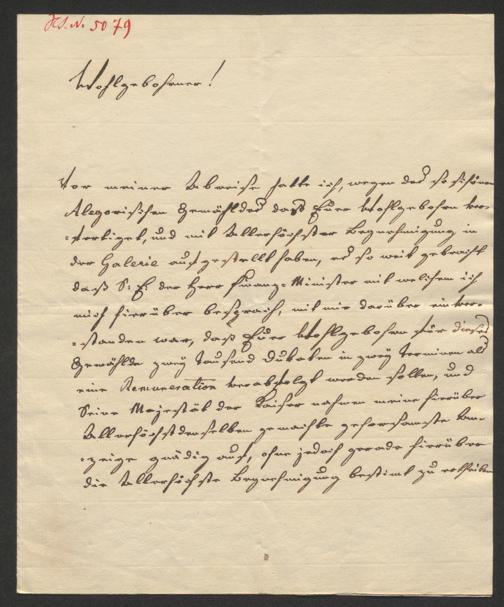 Hs. N. 5079
Wohlgebohrner!
Vor meiner Abreise hatte ich, wegen des so schönen
Alegorischen Gemähldes daß Euer Wohlgebohrn ver-
=fertiget, und mit Allerhöchster Begnehmigung in
der Galerie aufgestellt haben, es so weit gebracht
daß S: E: der Herr Finanz-Minister mit welchem ich
mich hierüber besprach, mit mir darüber einver-
=standen war, daß Euer Wohlgebohrn für dieses
Gemählde zwey Tausend Dukaten in zwey Terminen als
eine Remuneration verabfolgt werden sollen, und
Seine Majestät der Kaiser nahmen meine hierüber
Allerhöchstdenselben gemachte gehorsamste An-
=zeige gnädig auf, ohne jedoch gerade hierüber
die Allerhöchste Begnehmigung bestimt zu ertheilen